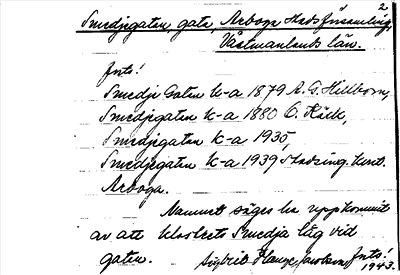 2
Smedjegatan, gata, Arboga stadsförsamling,
Västmanlands län.
Ints!
Smedje Gatan k-a 1879 A. G. Hillbom,
Smedjegatan k-a 1880 O. Käck,
Smedjegatan k-a 1935,
Smedjegatan k-a 1939 Stadsing. kont.
Arboga.
Namnet säges ha uppkommit
av att klostrets Smedja låg vid
gatan.
Sigfrid Ints!
1943.